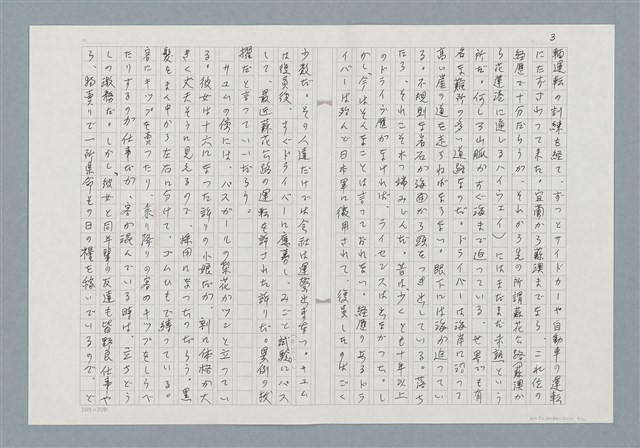 3
軸運転の訓練も経て、ずっとサイドカーや自動車の運転
にたずさわってきた。宜蘭から蘇澳までなら、これ位の
経歴で十分だろうが、それから先の所謂蘇花公路(蘇澳か
ら花蓮港に通じるハイウェイ)にはまだまだ未熟という
所だ。何しろ山脈がすぐ海まで迫っている、世界でも有
名な難所の多い道路なのだ。ドライバーは海岸に沿って
高い崖の道を走らねばならない。眼下には海が迫ってい
る。不規則な岩石が海面から頭をつき出している。落ち
たら、それこそ木っ端みじんだ。昔は少くとも十年以上
のドライブ歴がなければ、ライセンスは出なかった。し
かし今はそんなことは言っておれない。経歴のあるドラ
イバーは殆んで日本軍に徴用されて、復員したのはごく
少数だ。その人達だけでは会社は運営出来なっ。キユム
は復員後、すぐドライバーに應募し、みごと試験にパス
して、最近蘇花公路の運転を許された許りだ。異例の抜
擢だと言っていいだろう。
キユムの傍には、バスガールの梨花がツンと立ってい
る。彼女は十六になった許りの小娘だが、割に体格が大
きく丈夫そうに見えるので、採用になったのだろう。黒
髪をまん中から左右に分けて、ゴムひもで縛っている。
客にキップを売ったり、乗り降りの客のキップをしらべ
たりするのが仕事だが、客が混んでいる時は、立ちどう
しの激務だ。しかし、彼女と同年輩の友達も皆野良仕事や
ら、物売りで一所県命その日の糧を稼いでいるので、と